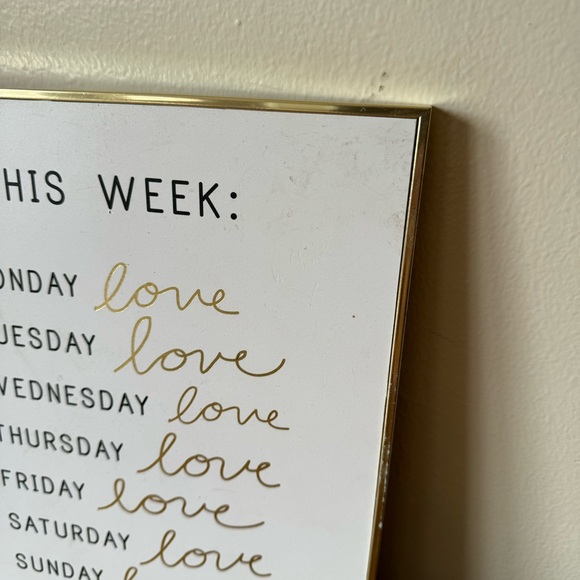 HIS WEEK:
ONDAY love
UESDAY love
WEDNESDAY love
THURSDAY love
FRIDAY love
SATURDAY love
SUNDAY